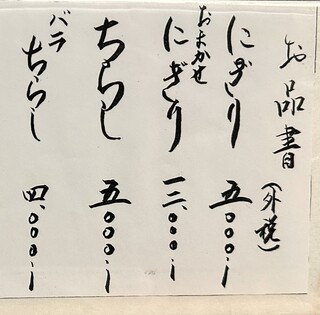 お品書
(外税)
にぎり 五、〇〇〇、ー
おまかせ
にぎり 一三、〇〇〇、ー
ちらし 五、〇〇〇、ー
バラ
ちらし 四、〇〇〇、ー